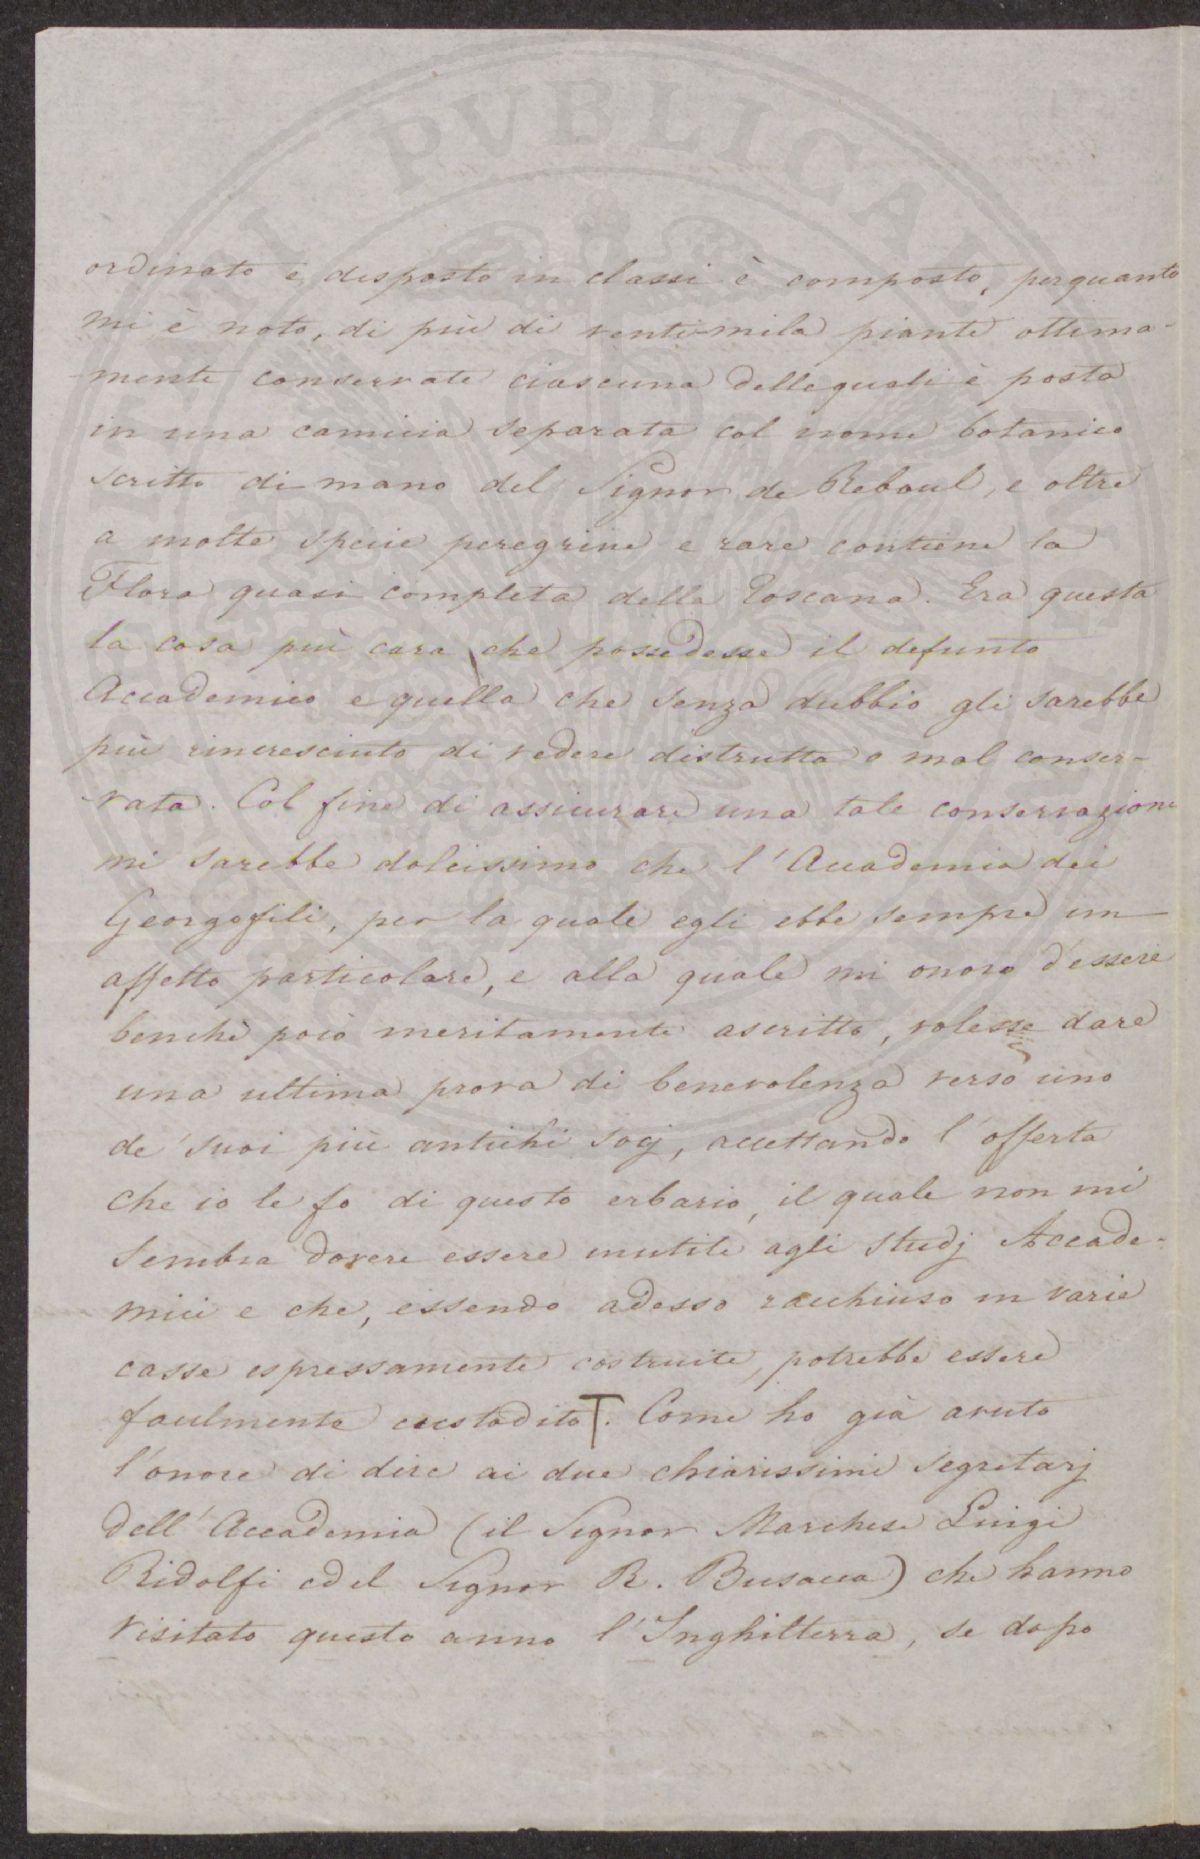 PVBLICAE VTILITATI
ordinato e disposto in classi è composto, perquanto
mi è noto, di più di venti-mila piante ottima-
mente conservate ciascuna dellequali è posta
in una camicia separata col nome botanico
scritto di mano del Signor de Reboul, e oltre
a molte specie peregrine e rare contiene la
Flora quasi completa della Toscana. Era questa
la cosa più cara che possedesse il defunto
Accademico e quella che senza dubbio gli sarebbe
più rincresciuto di vedere distrutta o mal conser-
vata. Col fine di assicurare una tale conservazione
mi sarebbe dolcissimo che l'Accademia dei
Georgofili, per la quale egli ebbe sempre un
affetto particolare, e alla quale mi onoro d'essere
benchè poco meritamente ascritto, volesse dare
una ultima prova di benevolenza verso uno
de' suoi più antichi socj, accettando l'offerta
che io le fo di questo erbario, il quale non mi
sembra dovere essere inutile agli studj Accade-
mici e che, essendo adesso racchiuso in varie
casse espressamente costruite, potrebbe essere
facilmente custodito. Come ho già avuto
l'onore di dire ai due chiarissimi segretarj
dell'Accademia (il Signor Marchese Luigi
Ridolfi ed il Signor R. Busacca) che hanno
visitato questo anno l'Inghilterra, se dopo